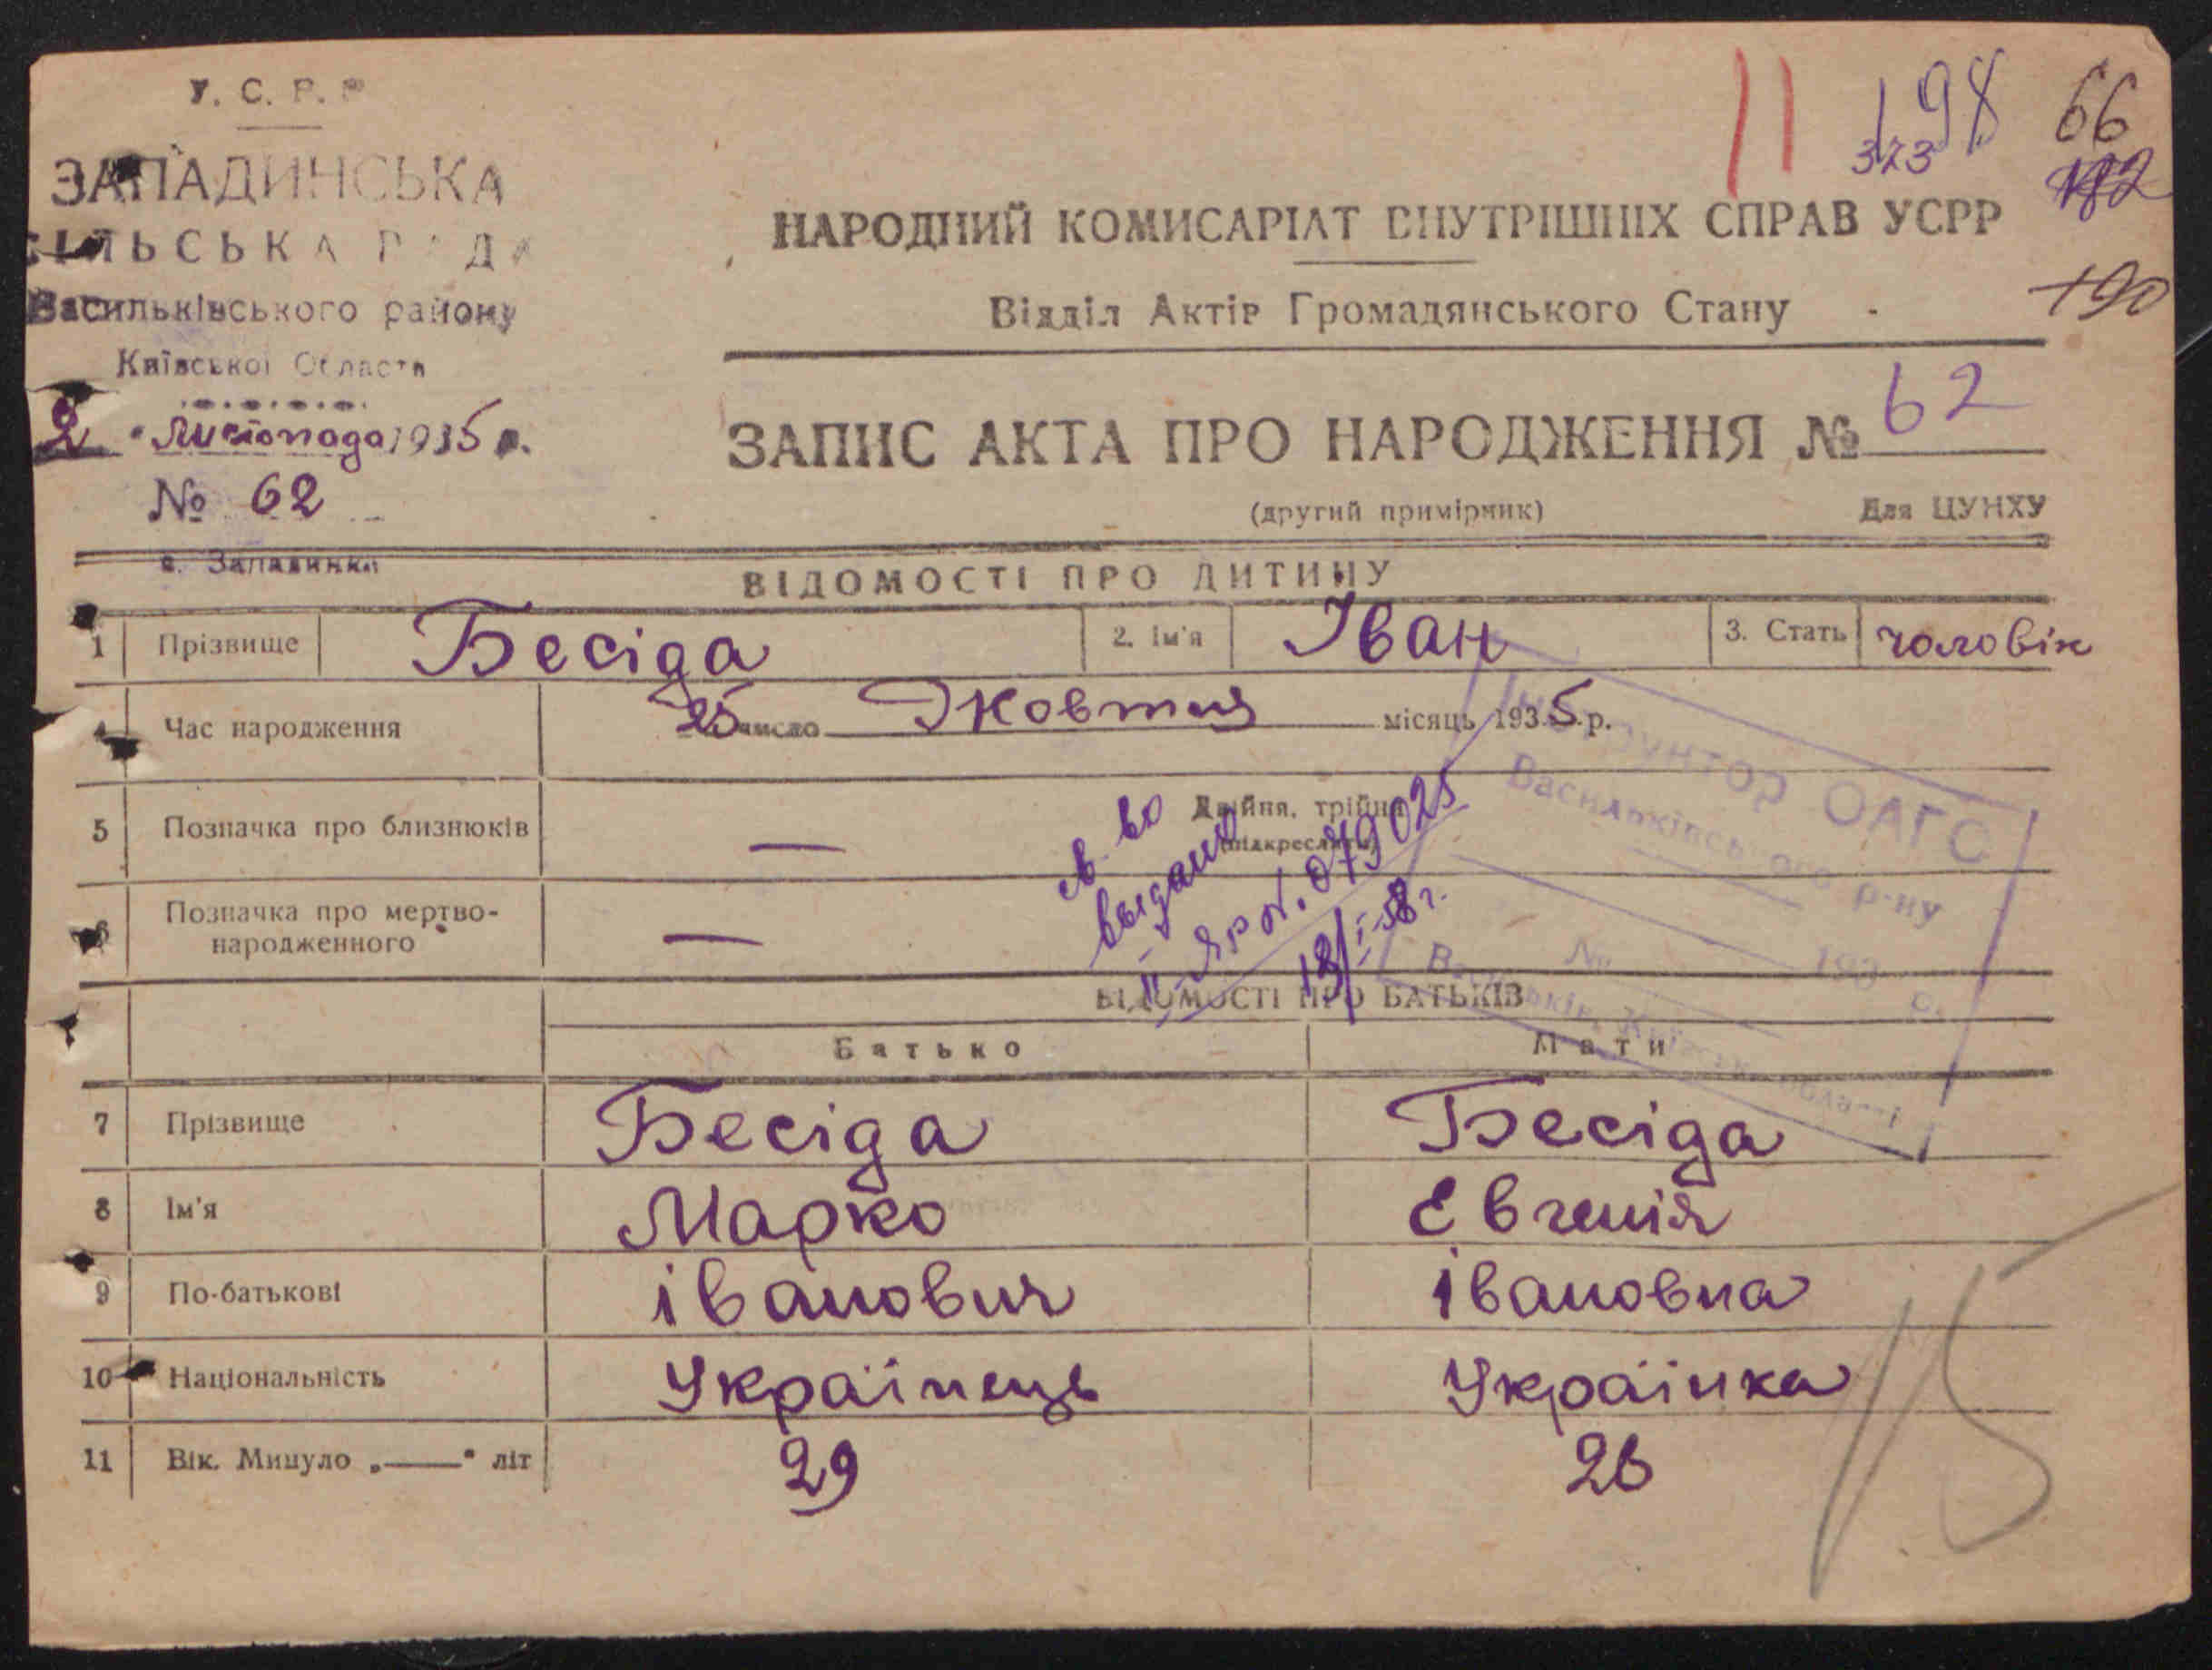 У. С. Р. Р
ЗАПАДИНСЬКА
СІЛЬСЬКА РАДА
Васильківського району
Київської Области
2 " Листопада 1935 р.
№ 62
с. Западинка
11 198 66
373 182
190
НАРОДНИЙ КОМИСАРІАТ ВНУТРІШНІХ СПРАВ УСРР
Відділ Актів Громадянського Стану
ЗАПИС АКТА ПРО НАРОДЖЕННЯ № 62
(другий примірник) Для ЦУНХУ
ВІДОМОСТІ ПРО ДИТИНУ
1 Прізвище Бесіда 2. Ім'я Іван 3. Стать чоловік
4 Час народження 25 число Жовтня місяць 1935 р.
5 Позначка про близнюків — Двійня, трійня
(підкреслити)
6 Позначка про мертво-
народженного —
св-во
выдано
II-ЯР № 079025
13/I-58 г.
Інструктор ОАГС
Васильківського р-ну
№ 193 р.
Васильків, Київської области
ВІДОМОСТІ ПРО БАТЬКІВ
Батько Мати
7 Прізвище Бесіда Бесіда
8 Ім'я Марко Евгенія
9 По-батькові іванович івановна
10 Національність Українець Українка
11 Вік. Минуло „——“ літ 29 26
15